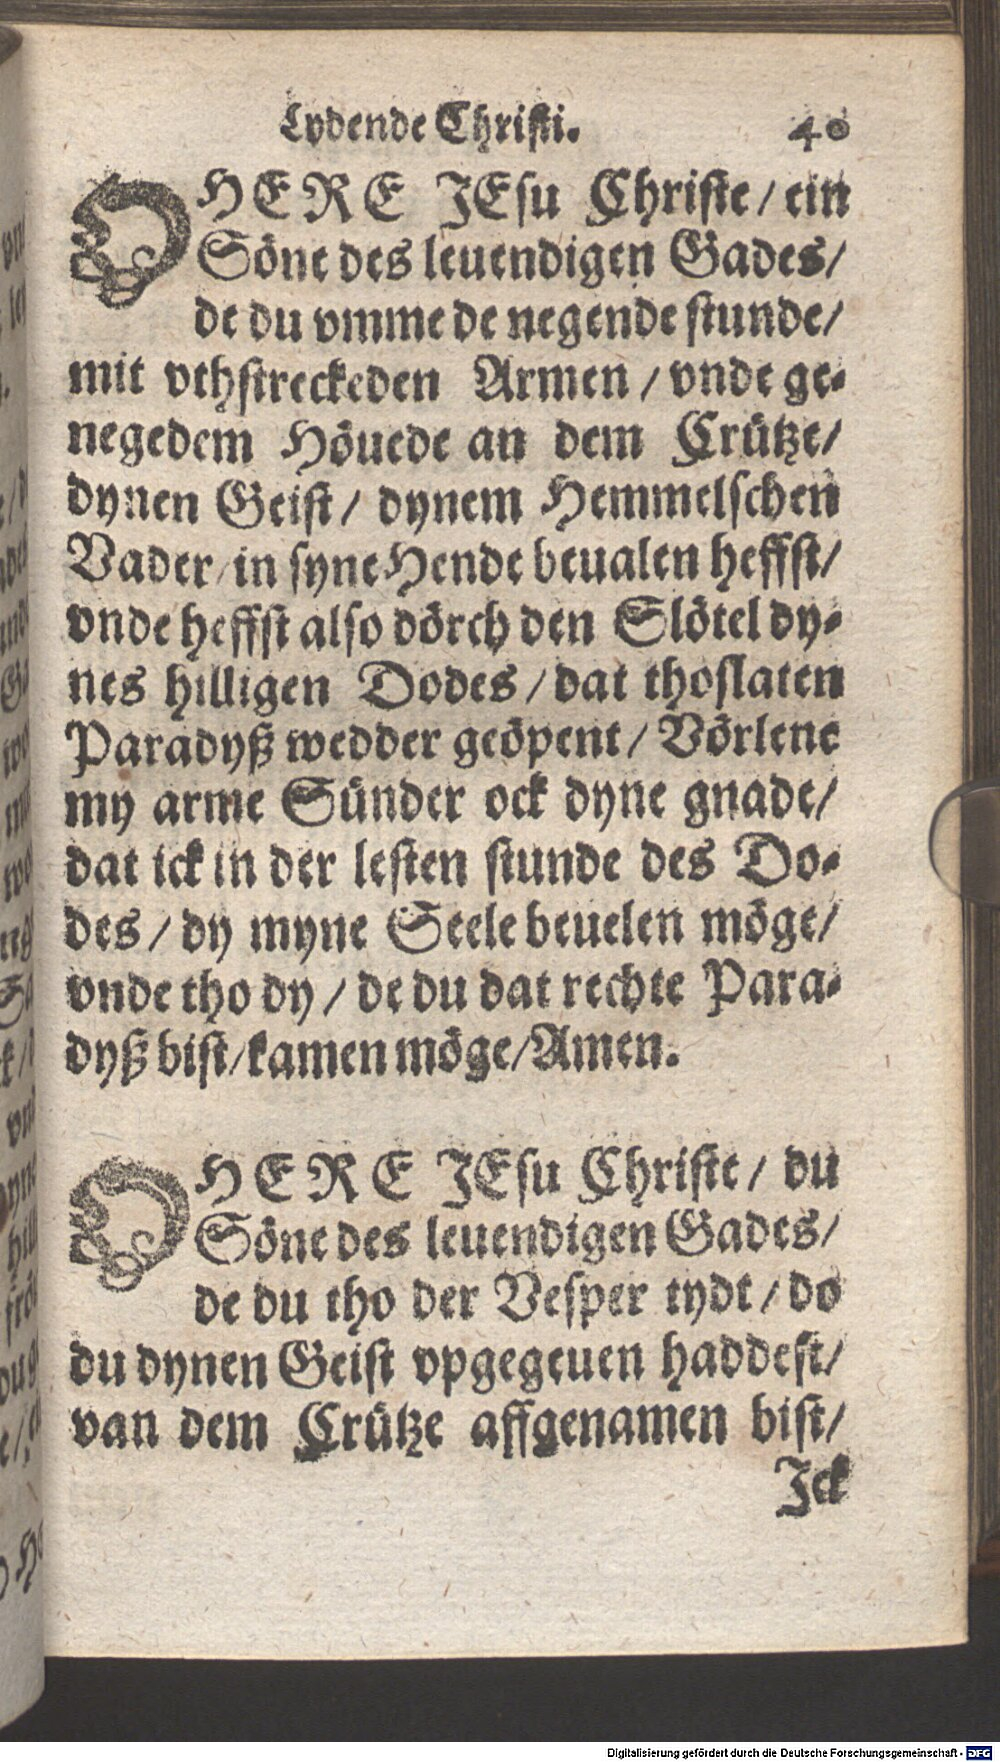 Lydende Christi. 40
O HERE JEsu Christe / ein
Söne des leuendigen Gades /
de du vmme de negende stunde /
mit vthstreckeden Armen / vnde ge-
negedem Höuede an dem Crütze /
dynen Geist / dynem Hemmelschen
Vader / in syne Hende beualen heffst /
vnde heffst also dörch den Slötel dy-
nes hilligen Dodes / dat thoslaten
Paradyß wedder geöpent / Vörlene
my arme Sünder ock dyne gnade /
dat ick in der lesten stunde des Do-
des / dy myne Seele beuelen möge /
vnde tho dy / de du dat rechte Para-
dyß bist / kamen möge / Amen.
O HERE JEsu Christe / du
Söne des leuendigen Gades /
de du tho der Vesper tydt / do
du dynen Geist vpgegeuen haddest /
van dem Crütze affgenamen bist /
Jck
Digitalisierung gefördert durch die Deutsche Forschungsgemeinschaft - DFG